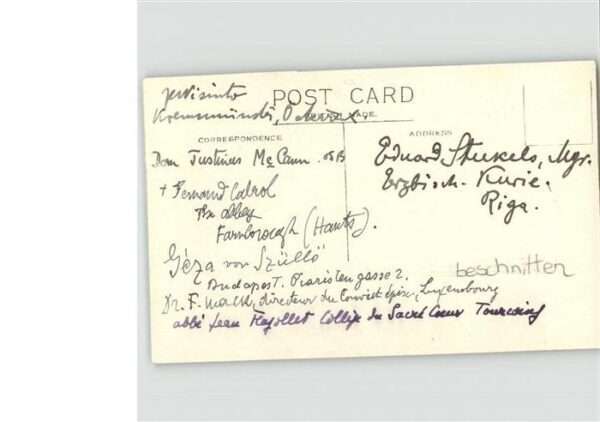 POST CARD
Kremsmünster,
CORRESPONDENCE
ADDRESS
Dom Justinus McCann. OSB
Eduard Stukels, Mgr.
Erzbisch. Kurie.
Riga.
+ Fernand Cabrol
The Abbey
Farnborough (Hants).
Géza von Szüllő
Budapest. Piaristengasse 2.
beschnitten
Dr. F. Mack, directeur du Convict épisc, Luxembourg
abbé Jean Collège du Sacré Coeur Tourcoing